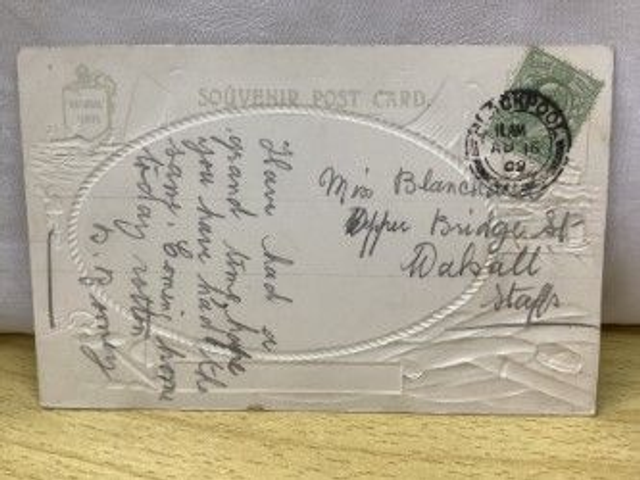 SOUVENIR POST CARD.
BLACKPOOL
11 AM
AP 16
09
Miss Blanchard
Upper Bridge St
Walsall
Staffs
Have had a
grand time, hope
you have had the
same. Comin home
today rotten